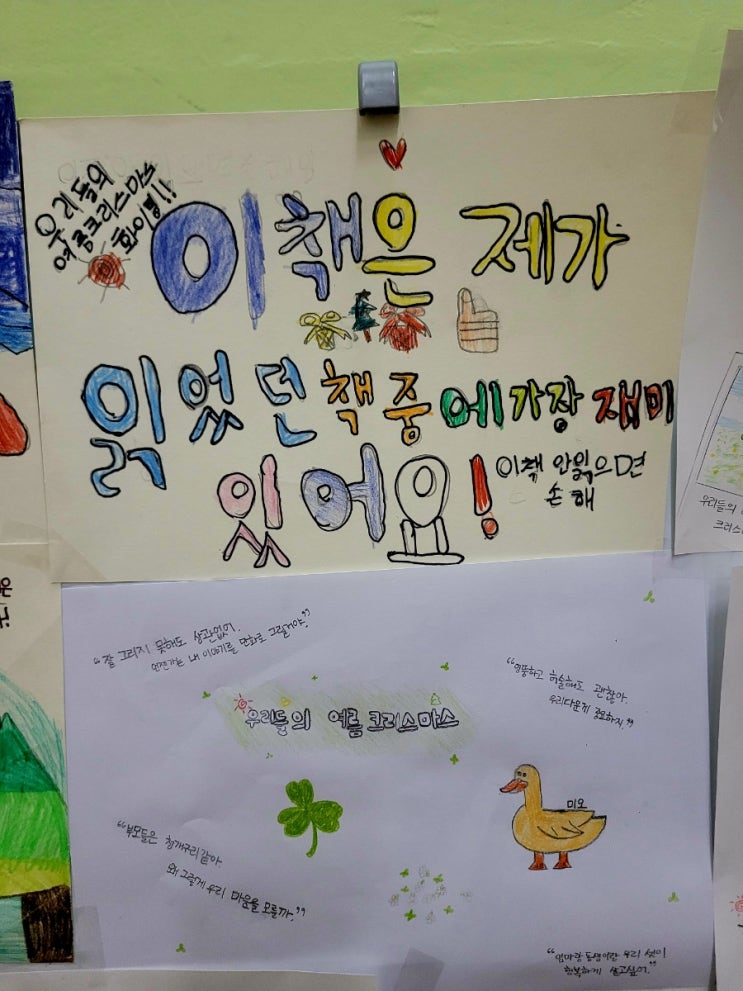 우리들의
여름크리스마스
화이팅!!
이 책은 제가
읽었던 책 중에 가장 재미
있어요!
이책 안읽으면
손해
"잘 그리지 못해도 상관없어.
언젠가는 내 이야기를 만화로 그릴거야."
"엉뚱하고 허술해도 괜찮아.
우리다운게 중요하지."
우리들의 여름 크리스마스
미오
"부모들은 청개구리 같아
왜 그렇게 우리 마음을 모를까."
"엄마랑 동생이랑 우리 셋이
행복하게 살고싶어."
우리들의
크리스